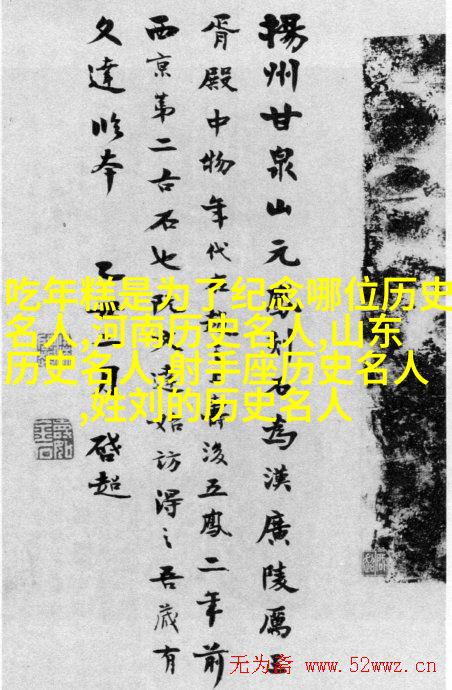 揚州甘泉山元石為漢廣陵厲王
胥殿中物年代後五鳳二年前
西京第二古石也阮達始訪得之吾藏有
文達本
月啓超
吃年糕是为了纪念哪位历史
名人,河南历史名人,山东
历史名人,射手座历史名人
,姓刘的历史名人
无为斋 www.52wwz.cn